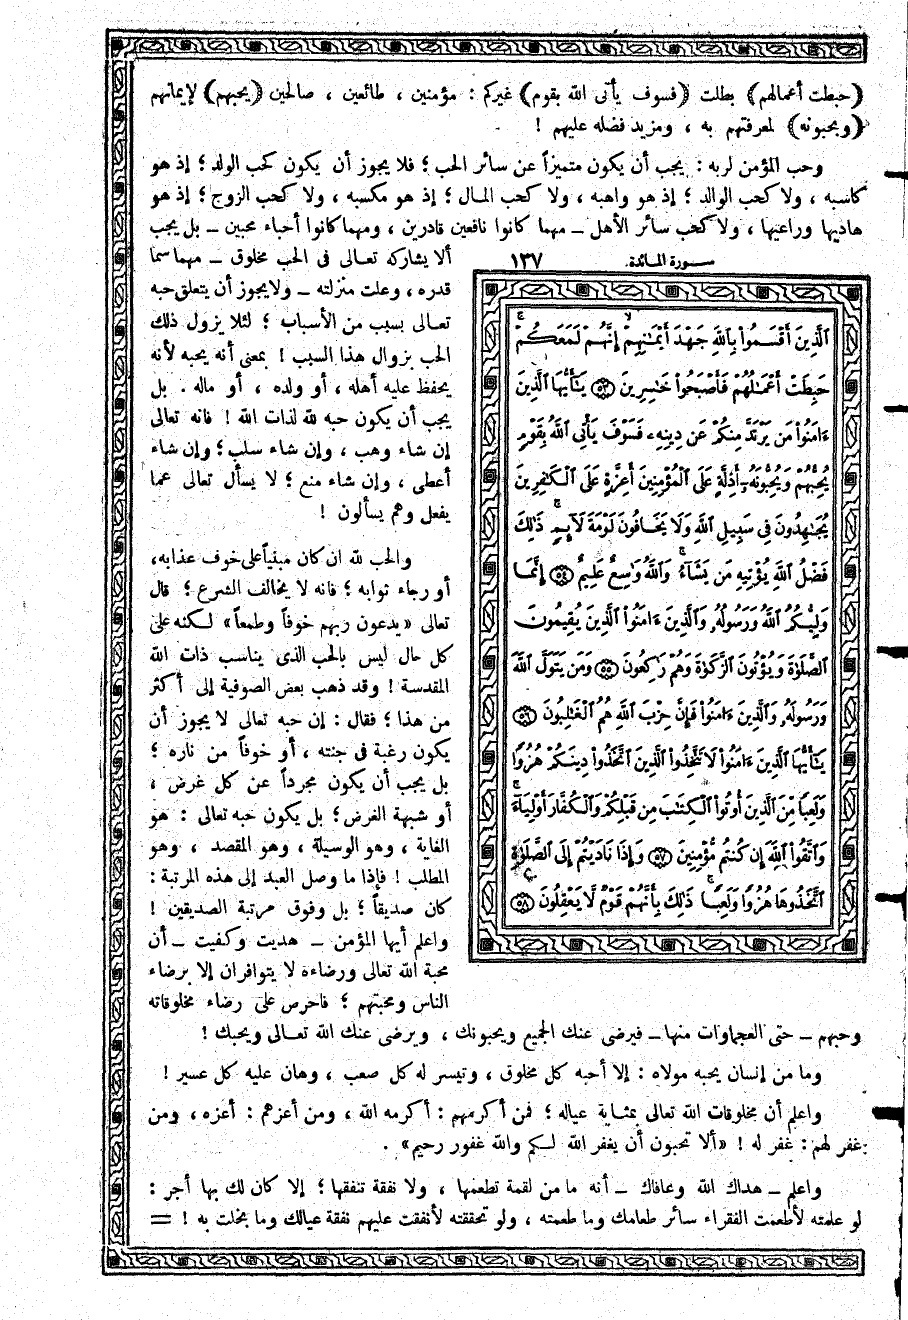 (حبطت أعمالهم) بطلت (فسوف يأتى الله بقوم) غيركم : مؤمنين ، طائعين ، صالحين (يحبهم) لإيمانهم
(ويحبونه) لمعرفتهم به ، ومزيد فضله عليهم !
وحب المؤمن لربه : يجب أن يكون متميزاً عن سائر الحب ؛ فلا يجوز أن يكون كحب الولد ؛ إذ هو
كاسبه ، ولا كحب الوالد ؛ إذ هو واهبه ، ولا كحب المال ؛ إذ هو مكسبه ، ولا كحب الزوج ؛ إذ هو
هاديها وراعيها ، ولا كحب سائر الأهل ــ مهما كانوا نافعين قادرين ، ومهما كانوا أحباء محبين ــ بل يجب
ألا يشاركه تعالى فى الحب مخلوق ــ مهما سما
قدره ، وعلت منزلته ــ ولا يجوز أن يتعلق حبه
تعالى بسبب من الأسباب ؛ لئلا يزول ذلك
الحب بزوال هذا السبب ! بمعنى أنه يحبه لأنه
يحفظ عليه أهله ، أو ولده ، أو ماله . بل
يجب أن يكون حبه لله لذات الله ! فانه تعالى
إن شاء وهب ، وإن شاء سلب ؛ وإن شاء
أعطى ، وإن شاء منع ؛ لا يسأل تعالى عما
يفعل وهم يسألون !
والحب لله ان كان مبنياً على خوف عذابه ،
أو رجاء ثوابه ؛ فانه لا يخالف الشرع ؛ قال
تعالى «يدعون ربهم خوفاً وطمعاً» لكنه على
كل حال ليس بالحب الذى يناسب ذات الله
المقدسة ! وقد ذهب بعض الصوفية إلى أكثر
من هذا ؛ فقال : إن حبه تعالى لا يجوز أن
يكون رغبة فى جنته ، أو خوفاً من ناره ؛
بل يجب أن يكون مجرداً عن كل غرض ،
أو شبهة الغرض ؛ بل يكون حبه تعالى : هو
الغاية ، وهو الوسيلة ، وهو المقصد ، وهو
المطلب ! فإذا ما وصل العبد إلى هذه المرتبة :
كان صديقاً ؛ بل وفوق مرتبة الصديقين !
واعلم أيها المؤمن ــ هديت وكفيت ــ أن
محبة الله تعالى ورضاءه لا يتوافران إلا برضاء
الناس ومحبتهم ؛ فاحرص على رضاء مخلوقاته
سورة المائدة. ١٣٧
ٱلَّذِينَ أَقْسَمُوا۟ بِٱللَّهِ جَهْدَ أَيْمَٰنِهِمْ إِنَّهُمْ لَمَعَكُمْ
حَبِطَتْ أَعْمَٰلُهُمْ فَأَصْبَحُوا۟ خَٰسِرِينَ ٥٣ يَٰٓأَيُّهَا ٱلَّذِينَ
ءَامَنُوا۟ مَن يَرْتَدَّ مِنكُمْ عَن دِينِهِۦ فَسَوْفَ يَأْتِى ٱللَّهُ بِقَوْمٍ
يُحِبُّهُمْ وَيُحِبُّونَهُۥٓ أَذِلَّةٍ عَلَى ٱلْمُؤْمِنِينَ أَعِزَّةٍ عَلَى ٱلْكَٰفِرِينَ
يُجَٰهِدُونَ فِى سَبِيلِ ٱللَّهِ وَلَا يَخَافُونَ لَوْمَةَ لَآئِمٍ ذَٰلِكَ
فَضْلُ ٱللَّهِ يُؤْتِيهِ مَن يَشَآءُ وَٱللَّهُ وَٰسِعٌ عَلِيمٌ ٥٤ إِنَّمَا
وَلِيُّكُمُ ٱللَّهُ وَرَسُولُهُۥ وَٱلَّذِينَ ءَامَنُوا۟ ٱلَّذِينَ يُقِيمُونَ
ٱلصَّلَوٰةَ وَيُؤْتُونَ ٱلزَّكَوٰةَ وَهُمْ رَٰكِعُونَ ٥٥ وَمَن يَتَوَلَّ ٱللَّهَ
وَرَسُولَهُۥ وَٱلَّذِينَ ءَامَنُوا۟ فَإِنَّ حِزْبَ ٱللَّهِ هُمُ ٱلْغَٰلِبُونَ ٥٦
يَٰٓأَيُّهَا ٱلَّذِينَ ءَامَنُوا۟ لَا تَتَّخِذُوا۟ ٱلَّذِينَ ٱتَّخَذُوا۟ دِينَكُمْ هُزُوًا
وَلَعِبًا مِّنَ ٱلَّذِينَ أُوتُوا۟ ٱلْكِتَٰبَ مِن قَبْلِكُمْ وَٱلْكُفَّارَ أَوْلِيَآءَ
وَٱتَّقُوا۟ ٱللَّهَ إِن كُنتُم مُّؤْمِنِينَ ٥٧ وَإِذَا نَادَيْتُمْ إِلَى ٱلصَّلَوٰةِ
ٱتَّخَذُوهَا هُزُوًا وَلَعِبًا ذَٰلِكَ بِأَنَّهُمْ قَوْمٌ لَّا يَعْقِلُونَ ٥٨
وحبهم ــ حتى العجماوات منها ــ فيرضى عنك الجميع ويحبونك ، ويرضى عنك الله تعالى ويحبك !
وما من إنسان يحبه مولاه : إلا أحبه كل مخلوق ، وتيسر له كل صعب ، وهان عليه كل عسير !
واعلم أن مخلوقات الله تعالى بمثابة عياله ؛ فمن أكرمهم : أكرمه الله ، ومن أعزهم : أعزه ، ومن
غفر لهم : غفر له ! «ألا تحبون أن يغفر الله لكم والله غفور رحيم» .
واعلم ــ هداك الله وعافاك ــ أنه ما من لقمة تطعمها ، ولا نفقة تنفقها ؛ إلا كان لك بها أجر :
لو علمته لأطعمت الفقراء سائر طعامك وما طعمته ، ولو تحققته لأنفقت عليهم نفقة عيالك وما بخلت به ! =